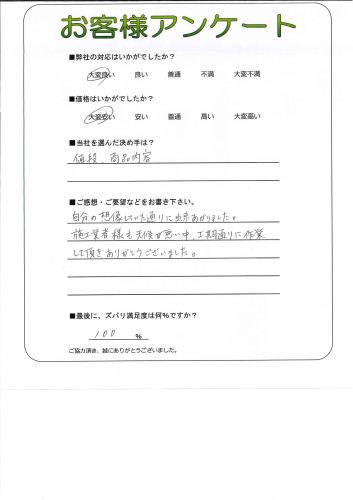 お客様アンケート
■弊社の対応はいかがでしたか?
大変良い 良い 普通 不満 大変不満
■価格はいかがでしたか?
大変安い 安い 普通 高い 大変高い
■当社を選んだ決め手は?
値段、商品内容
■ご感想・ご要望などをお書き下さい。
自分の想像していた通りに出来あがりました。
施工業者様も天候が悪い中、工期通りに作業
して頂きありがとうございました。
■最後に、ズバリ満足度は何%ですか?
100 %
ご協力頂き、誠にありがとうございました。